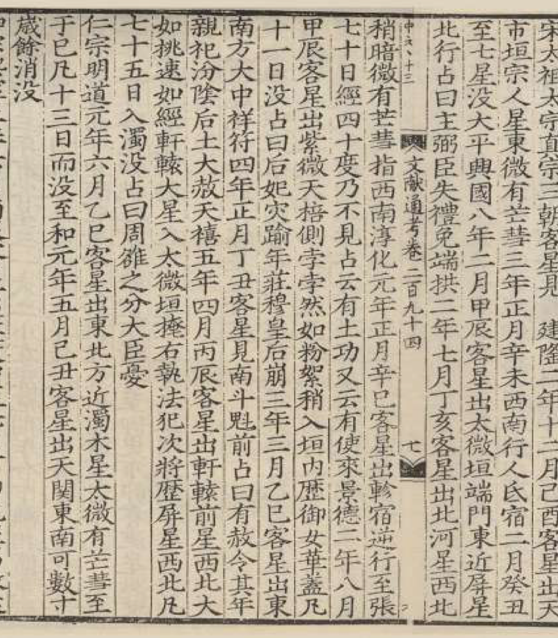 宋太祖太宗真宗三朝客星見 建隆二年十二月己酉客星出天
市垣宗人星東微有芒彗三年正月辛未西南行入氐宿二月癸丑
至七星没大平興國八年二月甲辰客星出太微垣端門東近屏星
北行占曰主弼臣失禮免端拱二年七月丁亥客星出北河星西北
文献通考卷二百九十四 七
稍暗微有芒彗指西南淳化元年正月辛巳客星出軫宿逆行至張
七十日經四十度乃不見占云有土功又云有使來景德二年八月
甲辰客星出紫微天棓側孛孛然如粉絮稍入垣内歷御女華蓋凡
十一日没占曰后妃灾踰年莊穆皇后崩三年三月乙巳客星出東
南方大中祥符四年正月丁丑客星見南斗魁前占曰有赦令其年
親祀汾陰后土大赦天禧五年四月丙辰客星出軒轅前星西北大
如桃速如經軒轅大星入太微垣掩右執法犯次將歷屏星西北凡
七十五日入濁没占曰周雒之分大臣憂
仁宗明道元年六月乙巳客星出東北方近濁木星太微有芒彗至
丁巳凡十三日而没至和元年五月己丑客星出天関東南可數寸
歳餘消没